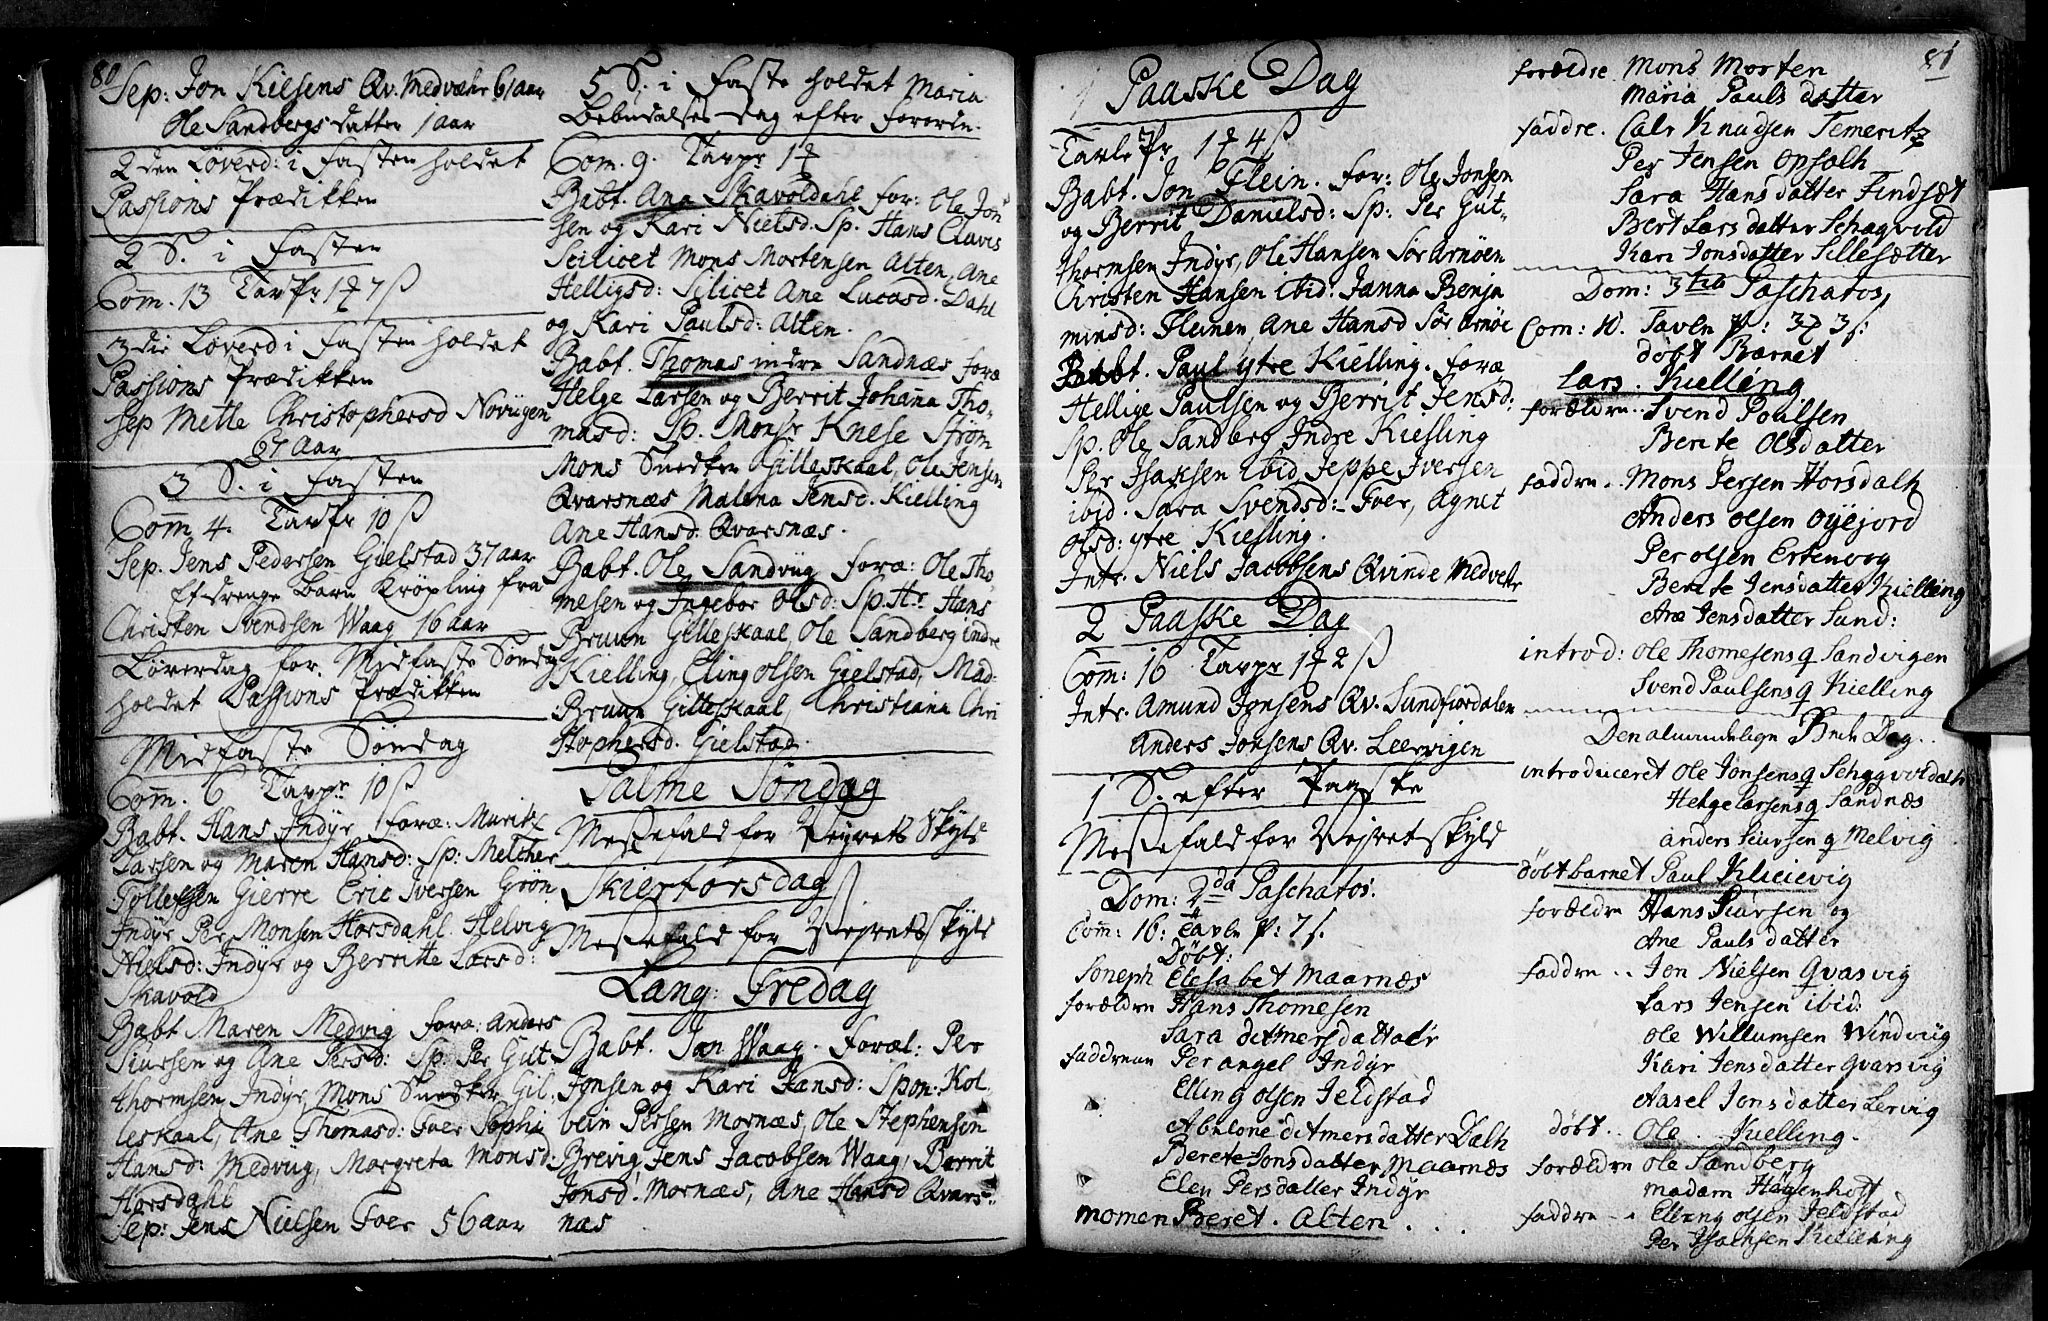 80
Sep: Jon Kielsens Qv. Medvæhr 61 aar
Ole Sandbergs datter 1 aar
2den Løverd: i Fasten holdet
Passions Prædikken
2 S. i Fasten
Com̄. 13 Tavpr 1 ꝝ 7 ß
3die Løverd i Fasten holdet
Passions Prædikken
Sep Mette Christophersd Novügen
67 Aar
3 S. i Fasten
Com̄ 4. Tavpr 10 ß
Sep. Jens Pedersen Gielstad 37 aar
Et drenge Barn Krøpling fra
Christen Svendsen Waag 16 aar
Løverdag for Midfaste Søndag
holdet Passions Prædikken
Midfaste Søndag
Com̄. 6 Tavpr 10 ß
Babt. Hans Indyr foræ: Muritz
Larsen og Maren Hansd: Sp: Melcher
Tollefsen Gierre Eric Iversen Grøn
Indyr Per Monsen Horsdahl. Helvig
Nielsd: Indyr og Berritte Larsd:
Skavold
Babt Maren Medvig foræ: Anders
Siursen og Ane Persd: Sp: Per Gut
thormsen Indyr, Mons Snedker Gil:
leskaal, Ane Thomasd: Foer Sophi
Hansd: Medvug, Margreta Monsd:
Horsdahl
Sep: Jens Nielsen Foer 56 aar
5 S. i Faste holdet Maria
Bebudelses dag efter Forordn.
Com. 9. Tavpr 1 ꝝ
Babt. Ana Skavoldahl for: Ole Jon
sen og Kari Nielsd. Sp. Hans Clavis
Scilicet Mons Mortensen Alten, Ane
Helligsd: Silicet Ane Lucasd. Dahl
og Kari Paulsd: Alten.
Babt. Thomas indre Sandnæs foræ
Helge Larsen og Berrit Johanna Tho-
masd: Sp. Monsr Knese Strøm
Mons Snedker Gilleskaal, Ole Jensen
Qvarsnæs Malena Jensd. Kielling
Ane Hansd: Qvarsnæs.
Babt. Ole Sandvüg foræ: Ole Tho-
mesen og Ingebor Olsd: Sp. Hr. Hans
Bruun Gilleskaal, Ole Sandberg indre
Kielling, Eling Olsen Gielstad, Mad:
Bruun Gilleskaal, Christiana Chri
stophersd. Gielstad.
Palme Søndag
Messefald for Veyrets Skyld
Skiertorsdag
Messefald for Veyrets skyld
Lang: Fredag
Babt. Jon Waag. Foræl: Per
Jonsen og Kari Hansd: Spon. Kol
bein Persen Mornæs, Ole Stephensen
Brevig Jens Jacobsen Waag, Berrit
Jonsd: Mornæs, Ane Hansd Qvars-
næs
1 Paaske Dag
Tavle Pr 1 ꝝ 4 ß
Babt. Jon Flein. for: Ole Jonsen
og Berrit Danielsd: Sp: Per Gut-
thormsen Indyr, Ole Hansen Sør Arnøen
Christen Hansen ibid: Janna Benja
minsd: Fleinen Ane Hansd Sør Arnøe
Babt. Paul ytre Kielling. foræ
Hellige Paulsen og Berrit Jensd:
Sp. Ole Sandberg Indre Kielling
Per Isaksen ibid Jeppe Iversen
ibid. Sara Svendsd: Foer, Agnet
Olsd: ytre Kielling.
Intr. Niels Jacobsens Qvinde Medvehr
2 Paaske Dag
Com̄: 16 Tavpr 1 ꝝ 2 ß
Intr. Amund Jonsens Qv. Sundfiordalen
Anders Jonsens Qv. Leervigen
1 S. efter Paaske
Messefald for Vejrets skyld
Dom: 2da Paschatos.
Com̄: 16: Tavln P: 7 s.
Døbt:
Soneph Elesabet Maarnæs
forældrn Hans Thomesen
Sara ditmersdatter
faddrenn Per angel Indyr
Elling olsen Jeldstad
Abelone ditmersdatter Dalh
Berete Jonsdatter Maarnæs
Elen Persdatter Indyr
momen Beret. Alten.
81
forældre. Mons Morten
Maria Pauls datter
faddre. Carl Knudsen Temeritz
Per Jensen Opsalh
Sara Hansdatter Findsæt
Bert Larsdatter Schagvold
Kari Jonsdatter Sillesætter
Dom: 3tia Paschatos,
Com: 10. Tavln P: 3 ꝝ 3 s:
døbt Barnet
Lars. Kielling
forældrn.. Svend Poulsen
Berite Olsdatter
faddrn.. Mons Persen Horsdalh
Anders olsen øyejord
Per olsen Ertenvog
Berite Jensdatter Kielling
Ane Jensdatter Sund:
introd: Ole Thomesens q Sandvigen
Svend Paulsens q Kielling
Den almindelige Bede Dag.
introduceret Ole Jonsens q Schagvoldalh
Helge Larsens q Sandnæs
anders Siursen q Melvig
døbt barnet Paul Klicievig
forældrn Hans Siursen og
Ane Pauls datter
faddrn.. Jon Nielsen Qvasvig
Lars Jensen ibid:
Ole Willumsen Windviig
Kari Jensdatter Qvarsvig
Aasel Jonsdatter Lervig
døbt.. Ole. Kielling.
forældrn Ole Sandberg
madam Hagenhoft
faddrn.. Elling olsen Jeldstad
Per Isachsen Kielling